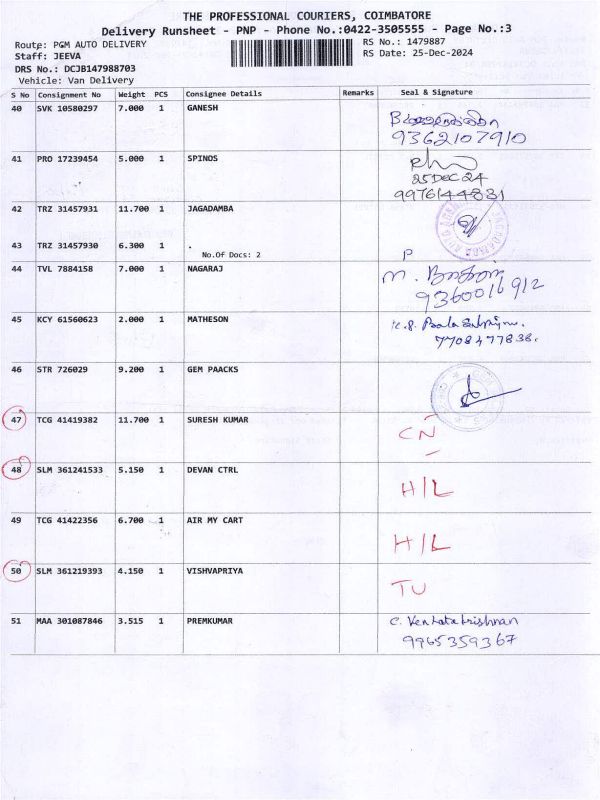 THE PROFESSIONAL COURIERS, COIMBATORE
Delivery Runsheet - PNP - Phone No.:0422-3505555 - Page No.:3
Route: PGM AUTO DELIVERY RS No.: 1479887
Staff: JEEVA RS Date: 25-Dec-2024
DRS No.: DCJB147988703
Vehicle: Van Delivery
S No Consignment No Weight PCS Consignee Details Remarks Seal & Signature
40 SVK 10580297 7.000 1 GANESH
9362107910
41 PRO 17239454 5.000 1 SPINOS
25 DEC 24
9976144831
42 TRZ 31457931 11.700 1 JAGADAMBA
43 TRZ 31457930 6.300 1 .
No.Of Docs: 2
P
44 TVL 7884158 7.000 1 NAGARAJ M.
9360016912
45 KCY 61560623 2.000 1 MATHESON
7708477838.
46 STR 726029 9.200 1 GEM PAACKS
47 TCG 41419382 11.700 1 SURESH KUMAR CN
48 SLM 361241533 5.150 1 DEVAN CTRL H/L
49 TCG 41422356 6.700 1 AIR MY CART H/L
50 SLM 361219393 4.150 1 VISHVAPRIYA TU
51 MAA 301087846 3.515 1 PREMKUMAR C. Venkatakrishnan
9965359367